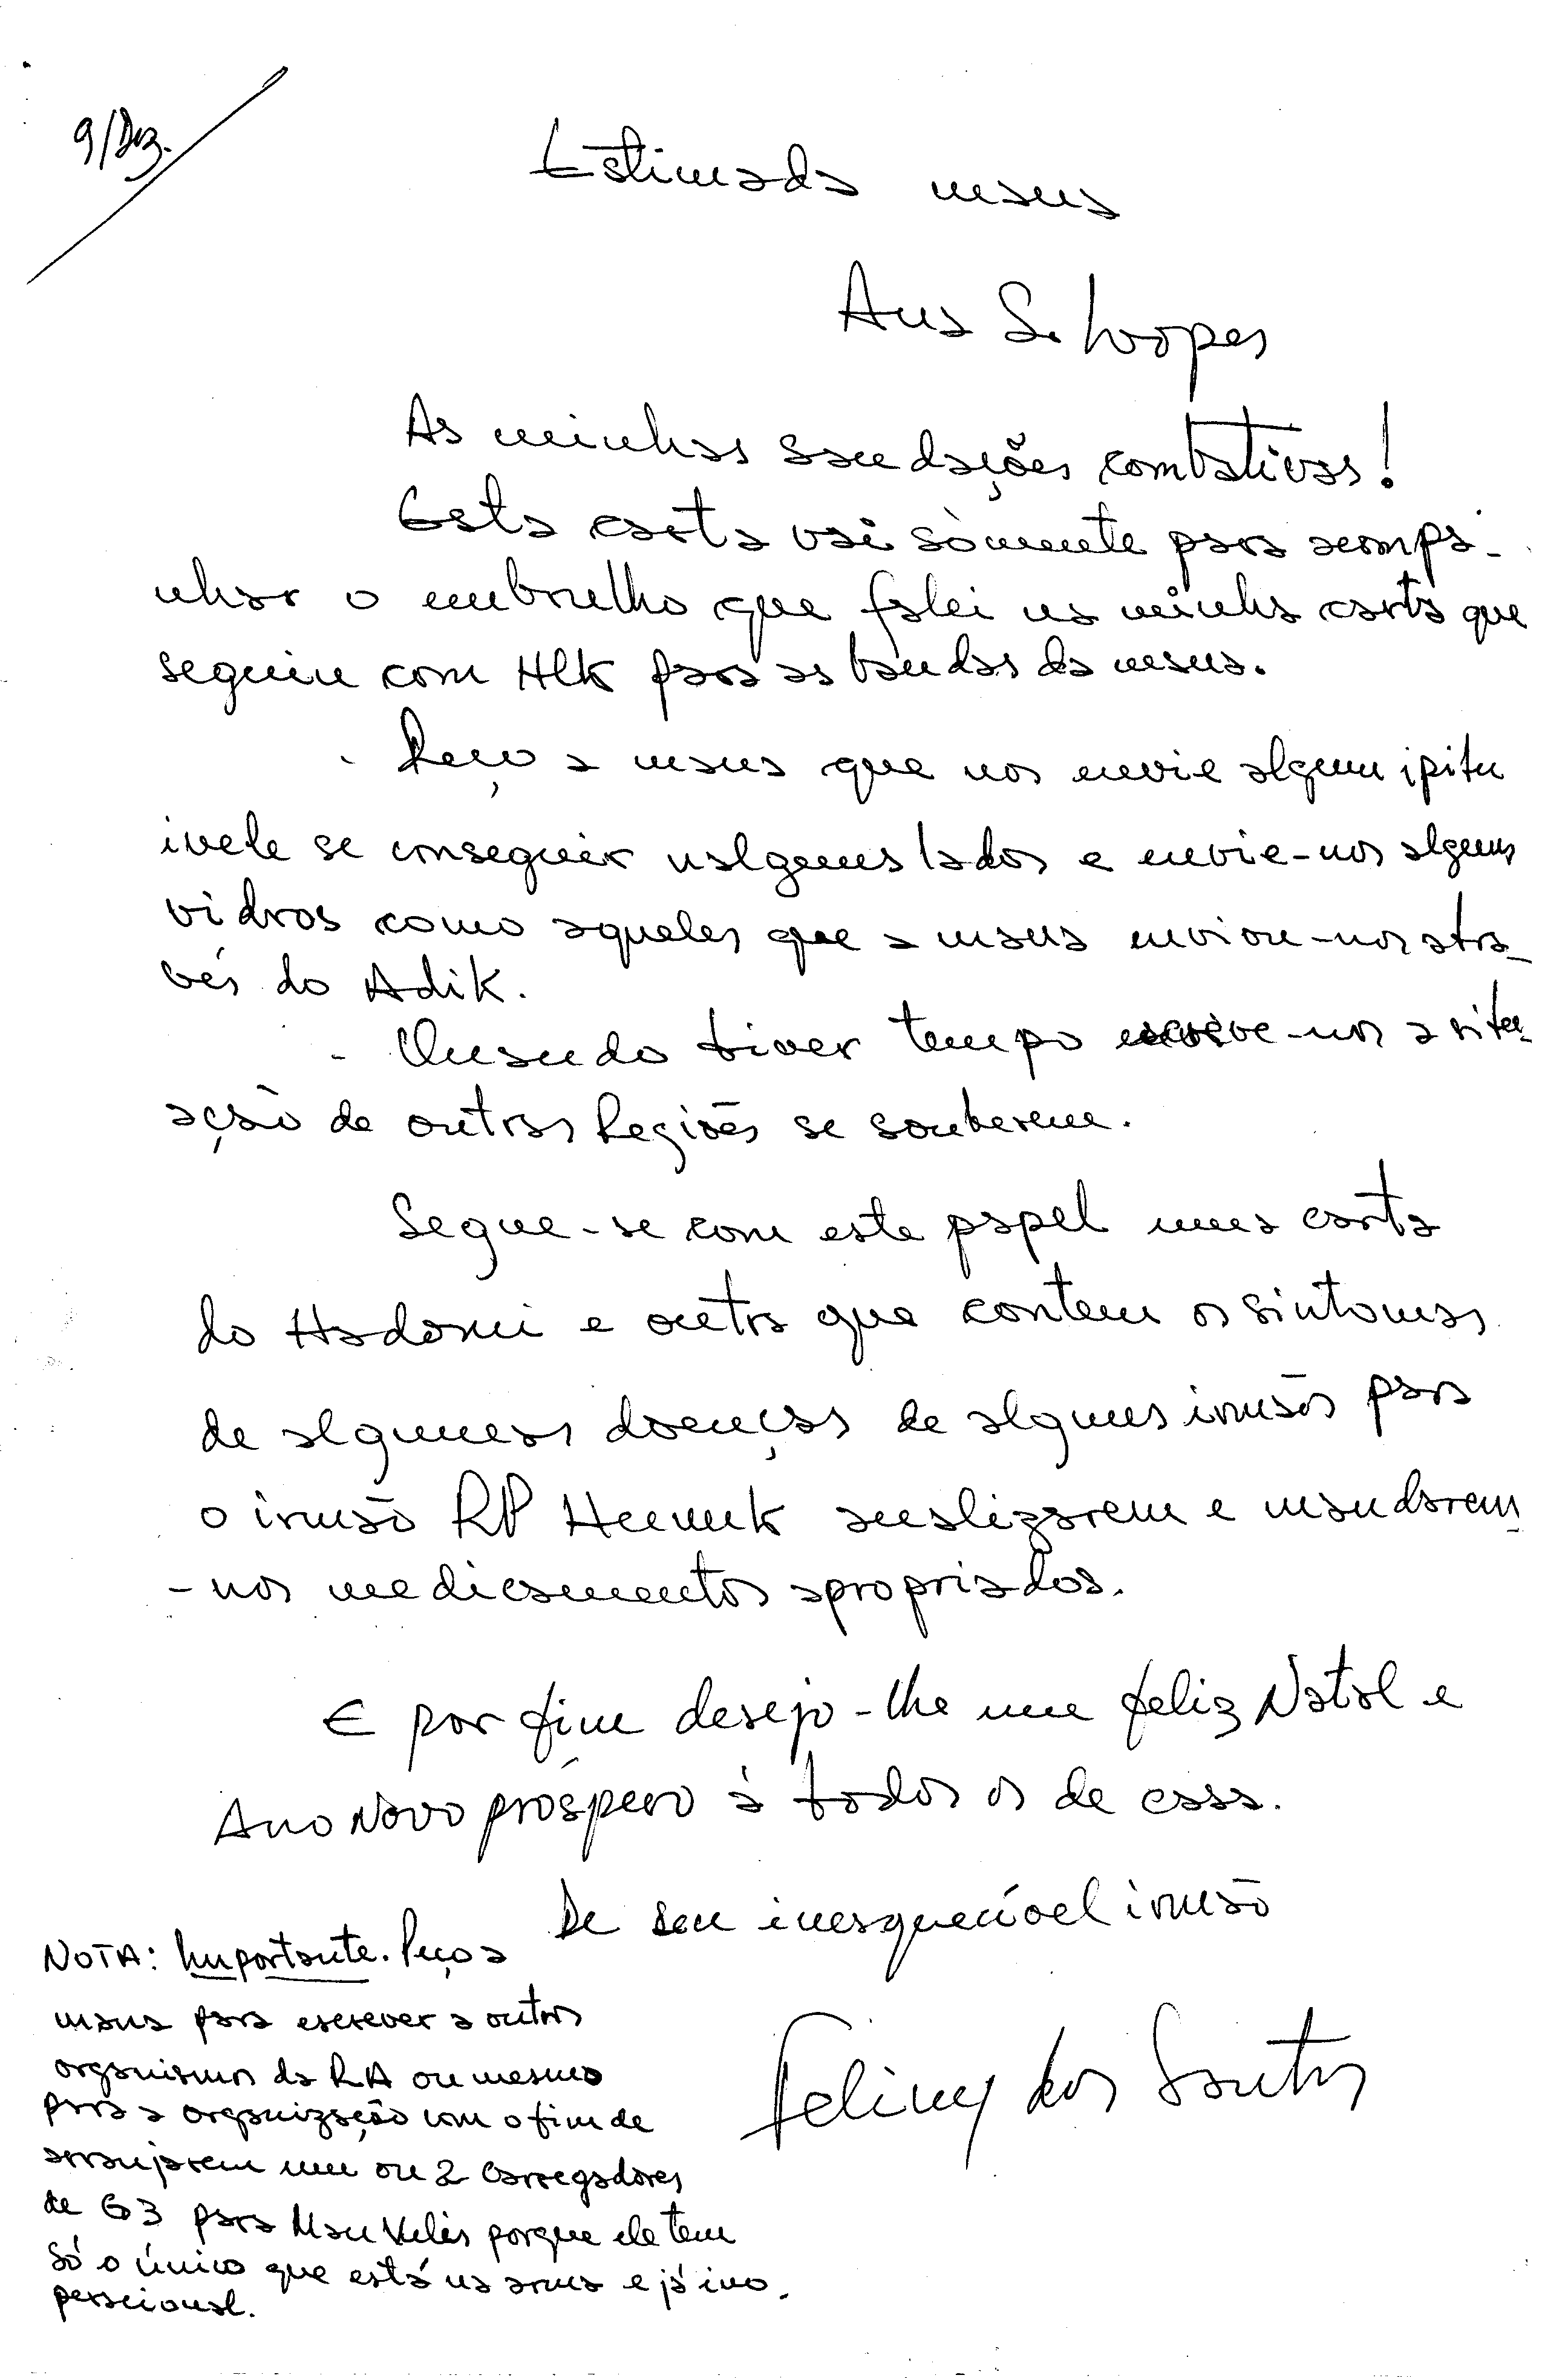 9/Dez.
Estimada mana
Ana S. Lopes
As minhas saudações combativas!
Esta carta vai sòmente para acompa-
nhar o embrulho que falei na minha carta que
seguiu com Hlk para as bandas da mana.
- Peço a mana que nos envie algum ipitu
ivele se conseguir nalguns lados e envie-nos alguns
vidros como aqueles que a mana enviou-nos atra-
vés do Adik.
- Quando tiver tempo escreve-nos a situ-
ação de outras Regiões se souberem.
Segue-se com este papel uma carta
do Hadomi e outra que contem os sintomas
de algumas doenças de alguns irmãos para
o irmão RP analizarem e mandarem
-nos medicamentos apropriados.
E por fim desejo-lhe um feliz Natal e
Ano Novo próspero à todos os de casa.
De seu inesquecível irmão
dos Santos
NOTA: Importante. Peço a
mana para escrever a outros
organismos da RA ou mesmo
para a organização com o fim de
arranjarem um ou 2 carregadores
de G3 para Mau Velis porque ele tem
só o único que está na arma e já ino-
peracional.